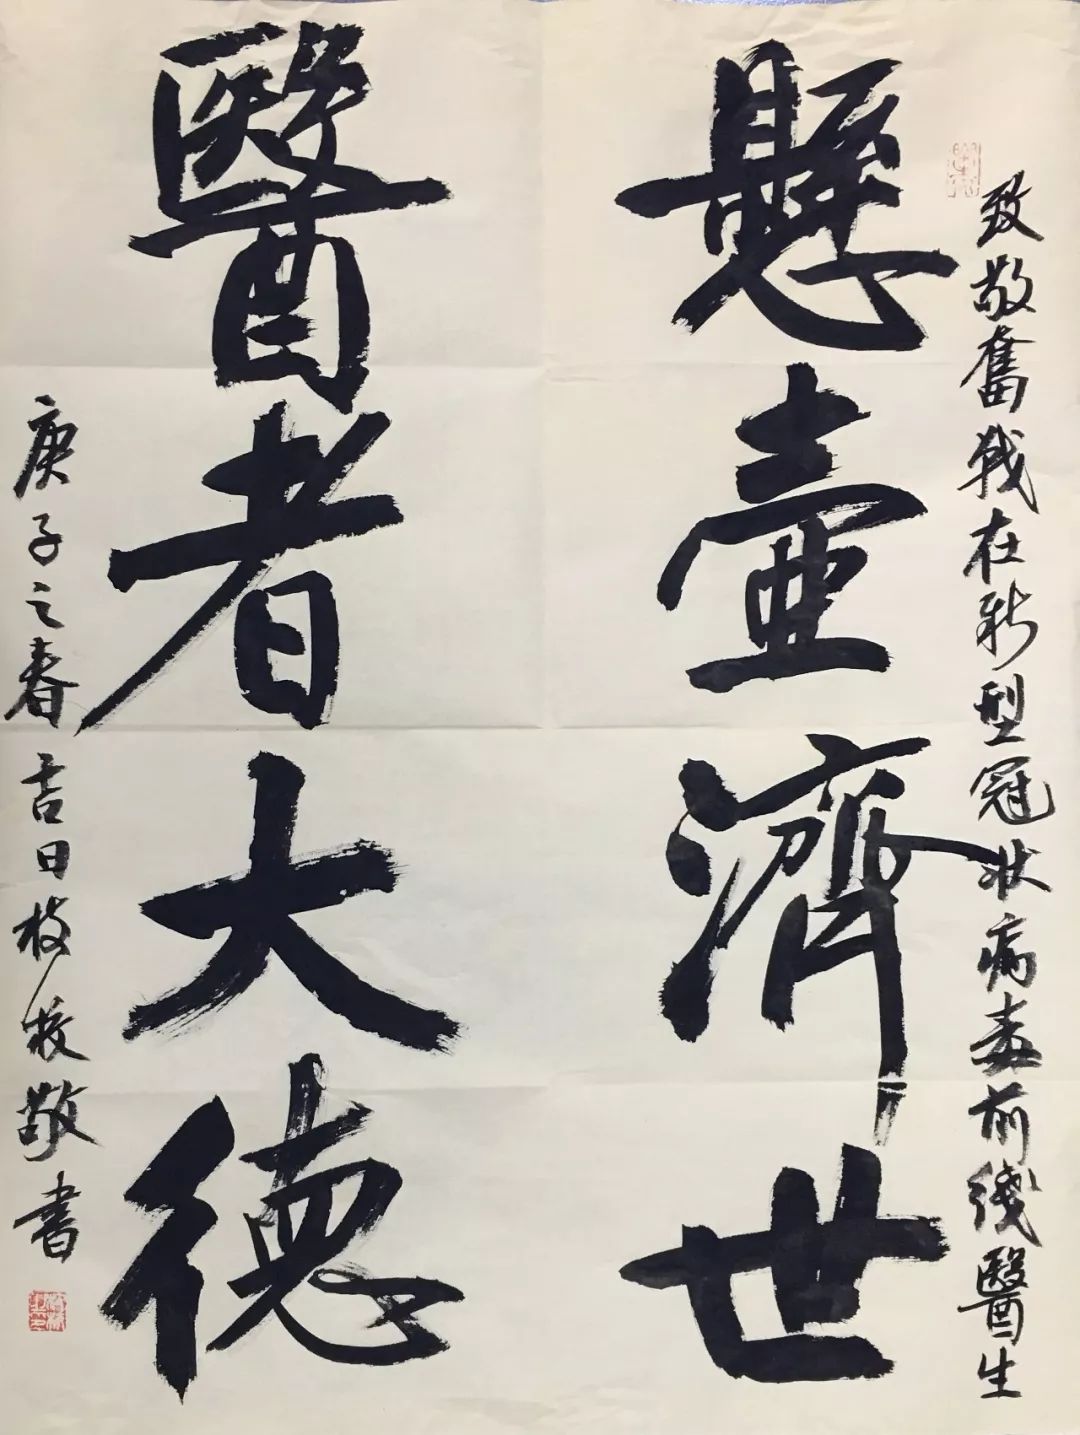 致敬奮戰在新型冠狀病毒前綫醫生
懸壺濟世
醫者大德
庚子之春吉日枝牧敬書